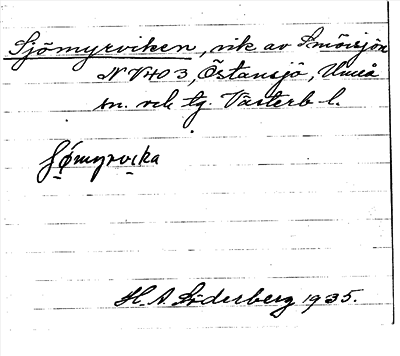 Sjömyrviken, vik av Smörsjön
N V40 3, Östansjö, Umeå
sn. och tg. Västerb. l.
Jömyrvika
H. A. Söderberg 1935.